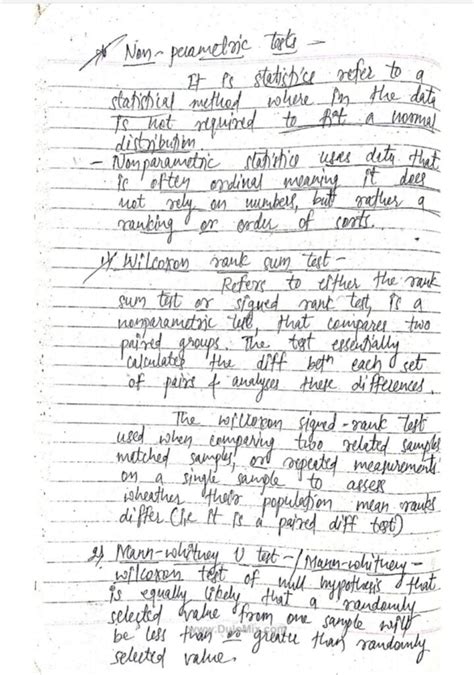 * Non-peramet​ric tests -
It is statistice refer to a
statistical method where in the data
is not required to fit a normal
distribution
- Nonparametric statistice uses data that
is often ordinal meaning it does
not rely on numbers, but rather a
ranking or order of sorts.
1) Wilcoxon rank sum test -
Refers to either the rank
sum test or signed rank test, is a
nonparametric test, that compares two
paired groups. The test essentially
calculates the diff betn each set
of pairs & analyses these differences.
The wilcoxon signed-rank test
used when comparing two related samples
matched samples, or repeated measurements
on a single sample to assess
wheather their population mean ranks
differ (ie it is a paired diff test)
2) Mann-whitney U test - / Mann-whitney -
wilcoxon test of null hypothesis that
is equally likely that a randomly
selected value from one sample will
be less than or greater than randomly
selected value.